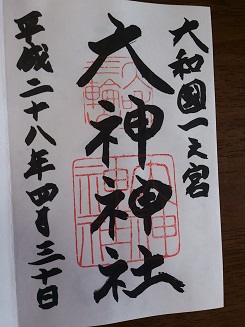 大和國一之宮
大神神社
平成二十八年四月三十日
三輪
大神神社